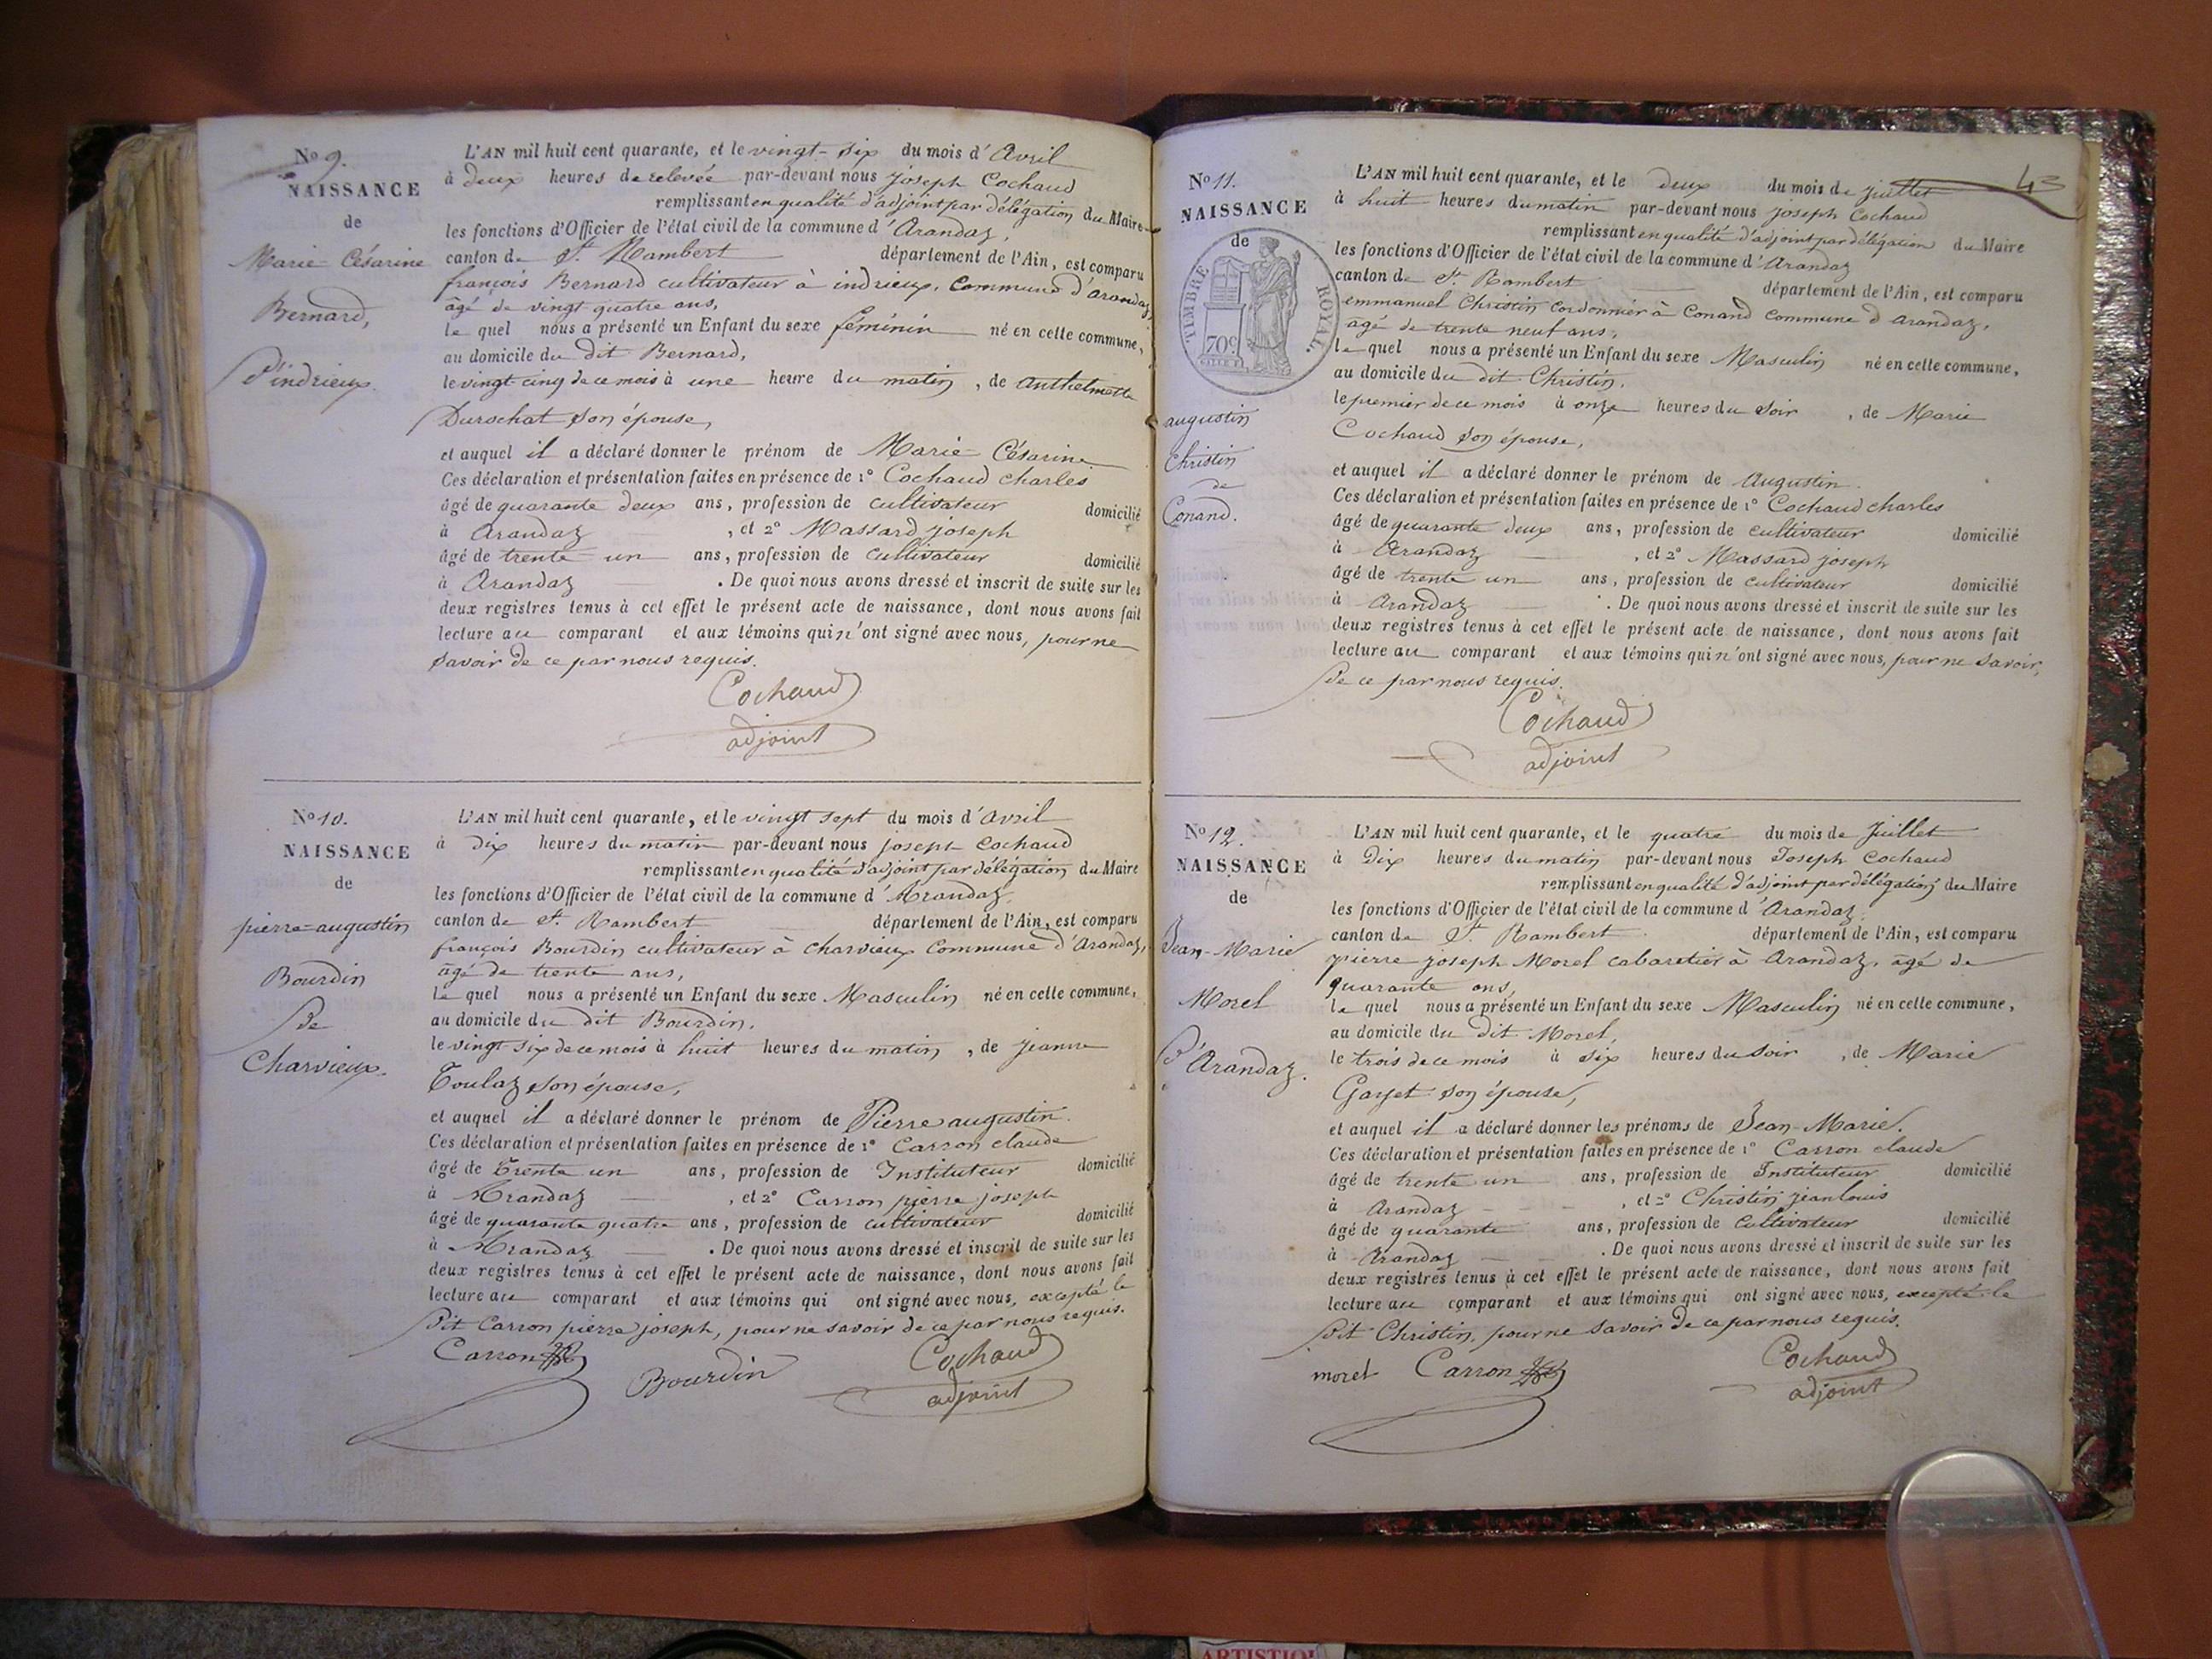 N° 9.
NAISSANCE
de
Marie Césarine
Bernard,
d'indrieux.
L'AN mil huit cent quarante, et le vingt-six du mois d'Avril
à deux heures de relevée par-devant nous joseph Cochaud
remplissant en qualité d'adjoint par délégation du Maire
les fonctions d'Officier de l'état civil de la commune d'Arandaz,
canton de St. Rambert département de l'Ain, est comparu
françois Bernard cultivateur à indrieux, Commune d'arandaz,
âgé de vingt quatre ans,
le quel nous a présenté un Enfant du sexe féminin né en cette commune,
au domicile du dit Bernard,
le vingt-cinq de ce mois à une heure du matin, de Anthelmette
Durochat son épouse,
et auquel il a déclaré donner le prénom de Marie Césarine.
Ces déclaration et présentation faites en présence de 1° Cochaud charles
âgé de quarante deux ans, profession de cultivateur domicilié
à Arandaz, et 2° Massard joseph
âgé de trente un ans, profession de cultivateur domicilié
à Arandaz. De quoi nous avons dressé et inscrit de suite sur les
deux registres tenus à cet effet le présent acte de naissance, dont nous avons fait
lecture au comparant et aux témoins qui n'ont signé avec nous, pour ne
savoir de ce par nous requis.
Cochaud
adjoint
N° 10.
NAISSANCE
de
pierre=augustin
Bourdin
de
Charvieux.
L'AN mil huit cent quarante, et le vingt sept du mois d'avril
à dix heures du matin par-devant nous joseph Cochaud
remplissant en qualité d'adjoint par délégation du Maire
les fonctions d'Officier de l'état civil de la commune d'Arandaz,
canton de St. Rambert département de l'Ain, est comparu
françois Bourdin cultivateur à charvieux Commune d'Arandaz,
âgé de trente ans,
le quel nous a présenté un Enfant du sexe Masculin né en cette commune,
au domicile du dit Bourdin,
le vingt six de ce mois à huit heures du matin, de jeanne
Toulaz son épouse,
et auquel il a déclaré donner le prénom de Pierre augustin.
Ces déclaration et présentation faites en présence de 1° Carron claude
âgé de trente un ans, profession de Instituteur domicilié
à Arandaz, et 2° Carron pierre joseph
âgé de quarante quatre ans, profession de cultivateur domicilié
à Arandaz. De quoi nous avons dressé et inscrit de suite sur les
deux registres tenus à cet effet le présent acte de naissance, dont nous avons fait
lecture au comparant et aux témoins qui ont signé avec nous, excepté le
dit Carron pierre joseph, pour ne savoir de ce par nous requis.
Carron Bourdin Cochaud
adjoint
43
N° 11.
NAISSANCE
de
TIMBRE ROYAL.
70c
augustin
Christin
de
Conand.
L'AN mil huit cent quarante, et le deux du mois de juillet
à huit heures du matin par-devant nous joseph Cochaud
remplissant en qualité d'adjoint par délégation du Maire
les fonctions d'Officier de l'état civil de la commune d'Arandaz
canton de St. Rambert département de l'Ain, est comparu
emmanuel Christin cordonnier à Conand Commune d'arandaz,
âgé de trente neuf ans,
le quel nous a présenté un Enfant du sexe Masculin né en cette commune,
au domicile du dit Christin,
le premier de ce mois à onze heures du soir, de Marie
Cochaud son épouse,
et auquel il a déclaré donner le prénom de Augustin.
Ces déclaration et présentation faites en présence de 1° Cochaud charles
âgé de quarante deux ans, profession de cultivateur domicilié
à Arandaz, et 2° Massard joseph
âgé de trente un ans, profession de cultivateur domicilié
à Arandaz. De quoi nous avons dressé et inscrit de suite sur les
deux registres tenus à cet effet le présent acte de naissance, dont nous avons fait
lecture au comparant et aux témoins qui n'ont signé avec nous, pour ne savoir,
de ce par nous requis.
Cochaud
adjoint
N° 12.
NAISSANCE
de
Jean-Marie
Morel
d'Arandaz.
L'AN mil huit cent quarante, et le quatre du mois de Juillet
à Dix heures du matin par-devant nous Joseph Cochaud
remplissant en qualité d'adjoint par délégation du Maire
les fonctions d'Officier de l'état civil de la commune d'Arandaz,
canton de St. Rambert département de l'Ain, est comparu
pierre joseph Morel cabaretier à Arandaz, âgé de
quarante ans,
le quel nous a présenté un Enfant du sexe Masculin né en cette commune,
au domicile du dit Morel,
le trois de ce mois à six heures du soir, de Marie
Garyet son épouse,
et auquel il a déclaré donner les prénoms de Jean-Marie.
Ces déclaration et présentation faites en présence de 1° Carron claude
âgé de trente un ans, profession de Instituteur domicilié
à Arandaz, et 2° Christin jean louis
âgé de quarante ans, profession de Cultivateur domicilié
à Arandaz. De quoi nous avons dressé et inscrit de suite sur les
deux registres tenus à cet effet le présent acte de naissance, dont nous avons fait
lecture au comparant et aux témoins qui ont signé avec nous, excepté le
dit Christin, pour ne savoir de ce par nous requis.
morel Carron Cochaud
adjoint